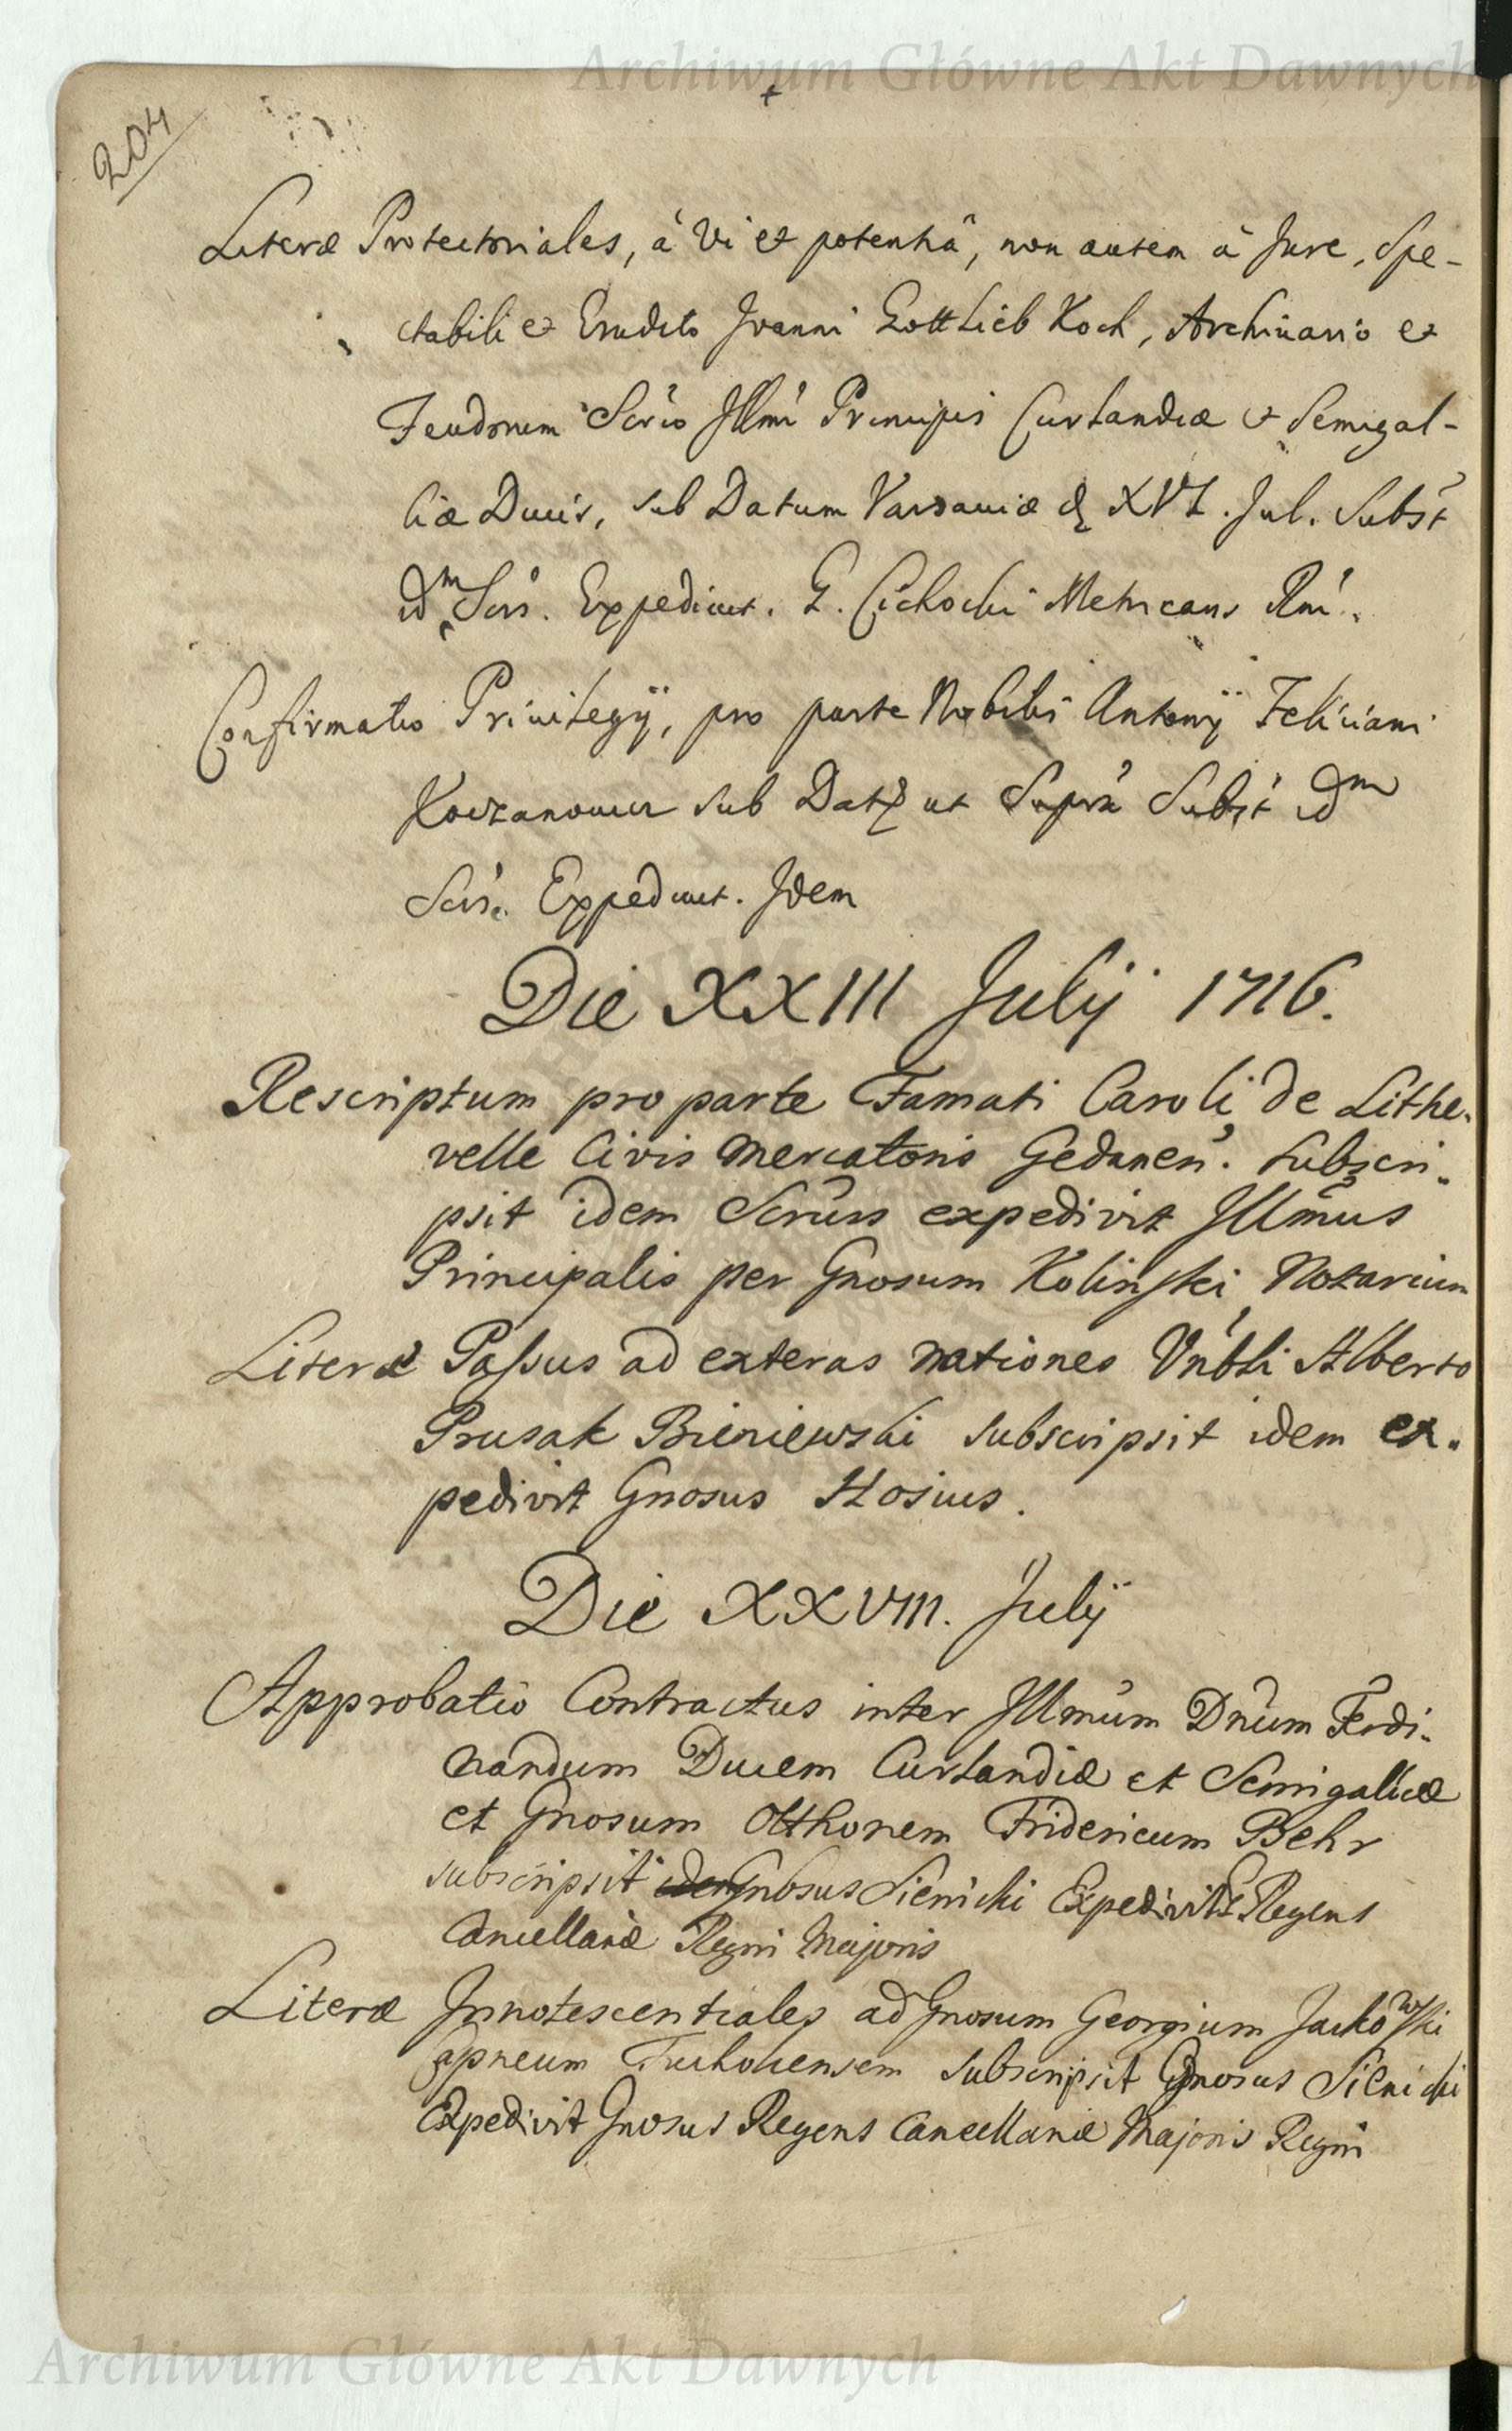 Archiwum Główne Akt Dawnych
204
Literæ Protectoriales, à Vi et potentiâ, non autem à Jure, Spe-
ctabili et Erudito Joanni Gottlieb Koch, Archivario et
Feudorum Scrio Jllmi Principis Curlandiæ et Semigal-
liæ Ducis, sub Datum Varsaviæ XVI. Jul. Subst
idm Scrs. Expedivit. G. Cichocki Metricans Rni.
Confirmatio Privilegÿ, pro parte Nobilis Antonÿ Feliciani
sub Dat ut Suprà Subst idm
Scrs. Expedivit. Jdem
Die XXIII Julÿ 1716.
Rescriptum pro parte Famati Caroli de Lithe-
velle Civis Mercatoris Gedanen. subscri-
psit idem Scrius expedivit Jllmus
Principalis per Gnosum Kolinski Notarium
Literæ Passus ad exteras nationes Vrbli Alberto
Prusak Bieniewski subscripsit idem ex-
pedivit Gnosus Hosius.
Die XXVIII. Julÿ
Approbatio Contractus inter Jllmum Dnum Ferdi-
nandum Ducem Curlandiæ et Semigalliæ
et Gnosum Otthonem Fridericum Behr
subscripsit Gnosus Sienicki Expedivit Regens
Cancellariæ Regni Majoris
Literæ Jnnotescentiales ad Gnosum Georgium Jackowski
Tucholiensem subscripsit Gnosus Sienicki
Expedivit Gnosus Regens Cancellariæ Majoris Regni
Archiwum Główne Akt Dawnych